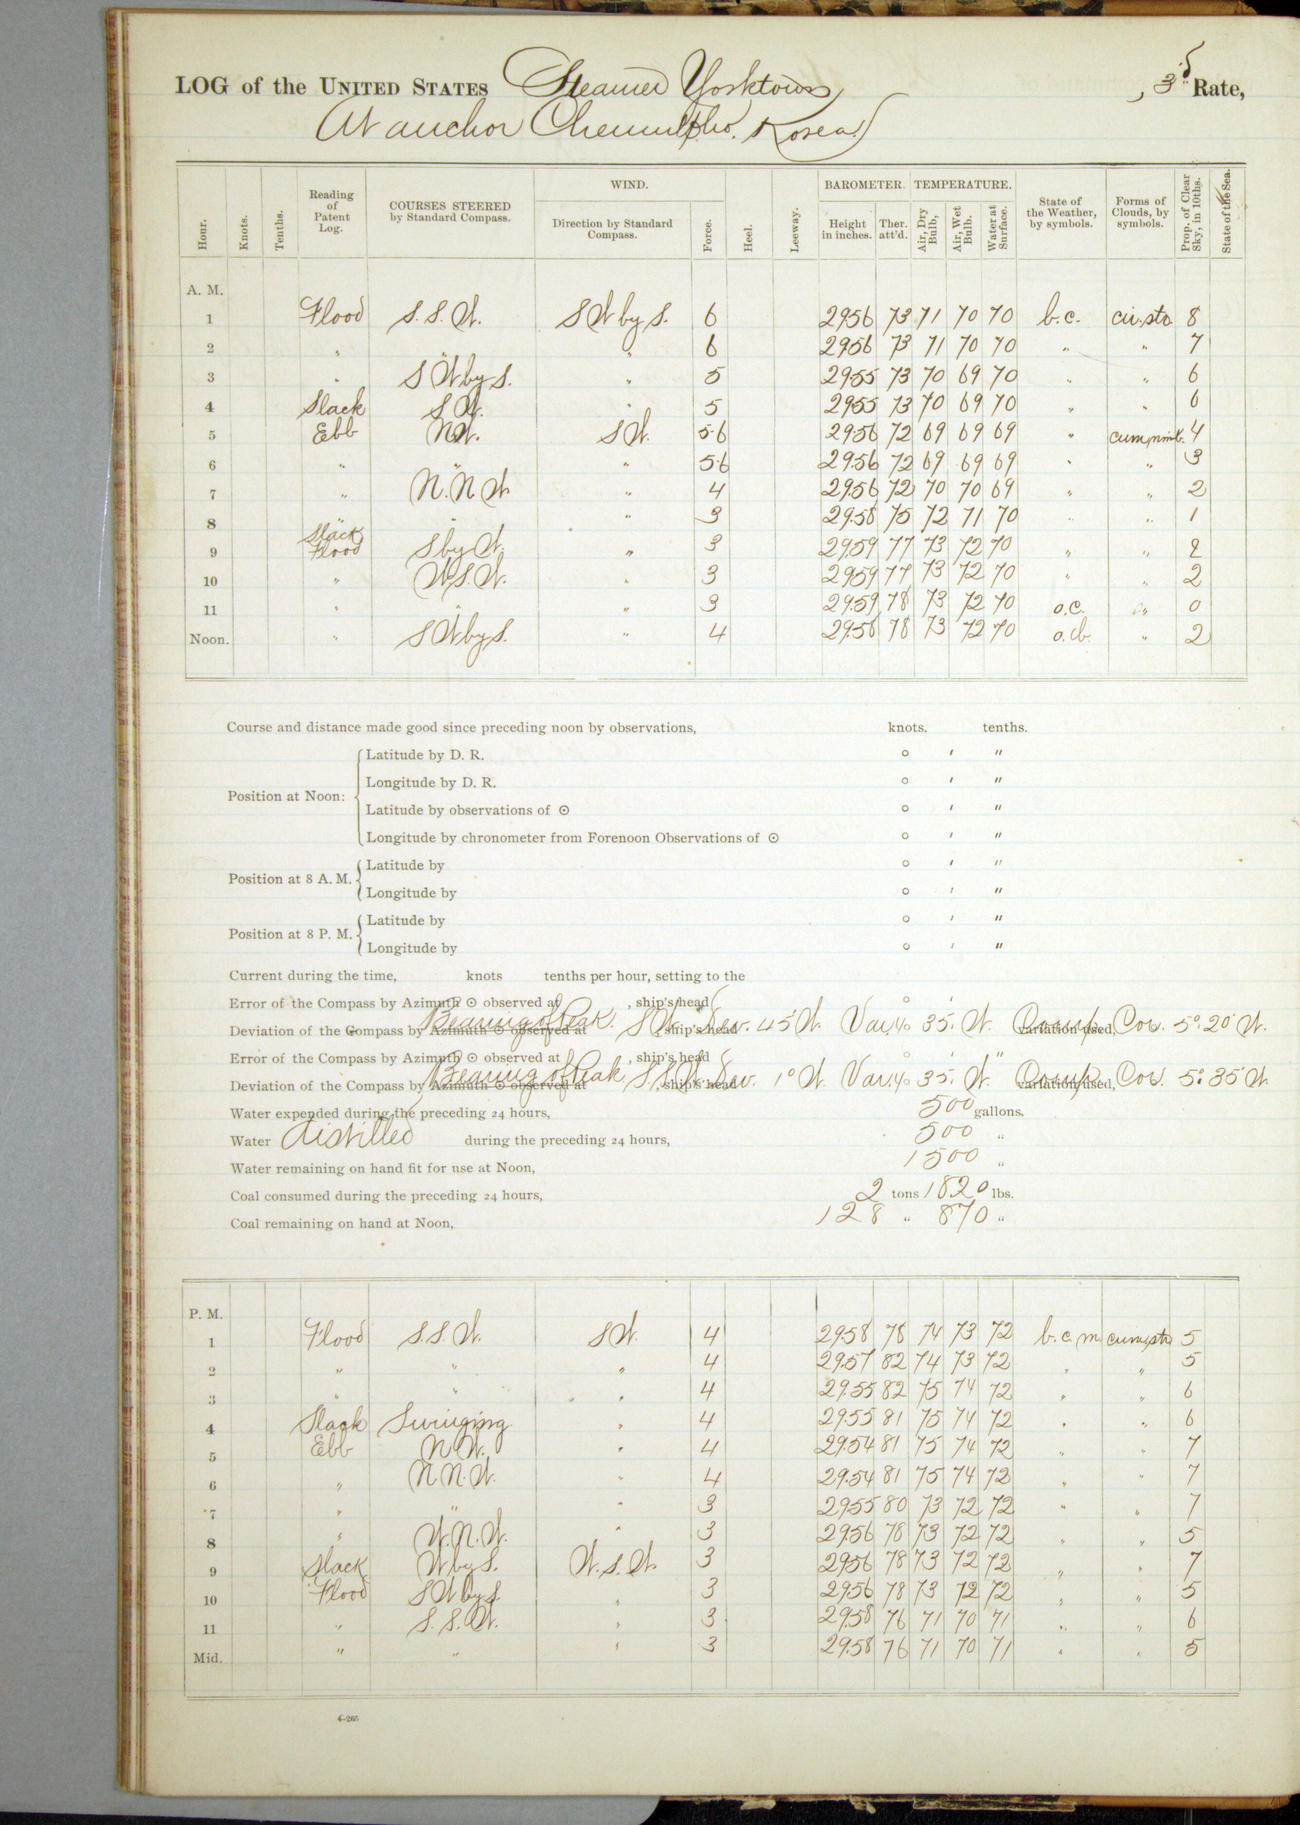 LOG of the UNITED STATES Steamer Yorktown, 3rd Rate,
At anchor Chemulpho, Korea.
Hour. Knots. Tenths. Reading of Patent Log. COURSES STEERED by Standard Compass. WIND. Direction by Standard Compass. Force. Heel. Leeway. BAROMETER. Height in inches. Ther. att'd. TEMPERATURE. Air, Dry Bulb, Air, Wet Bulb. Water at Surface. State of the Weather, by symbols. Forms of Clouds, by symbols. Prop. of Clear Sky, in 10ths. State of the Sea.
A. M.
1 Flood S.S.W. SW by S. 6 29.56 73 71 70 70 b.c. cir.str. 8
2 " " " 6 29.56 73 71 70 70 " " 7
3 " SW by S. " 5 29.55 73 70 69 70 " " 6
4 Slack S.W. " 5 29.55 73 70 69 70 " " 6
5 Ebb NW. SW. 5-6 29.56 72 69 69 69 " cum.nimb. 4
6 " " " 5-6 29.56 72 69 69 69 " " 3
7 " N.N.W. " 4 29.56 72 70 70 69 " " 2
8 " " " 3 29.58 75 72 71 70 " " 1
9 Slack Flood S by W. " 3 29.59 77 73 72 70 " " 2
10 " W.S.W. " 3 29.59 77 73 72 70 " " 2
11 " " " 3 29.59 78 73 72 70 o.c. " 0
Noon. " SW by S. " 4 29.58 78 73 72 70 o.cb. " 2
Course and distance made good since preceding noon by observations, knots. tenths.
Position at Noon:
Latitude by D. R. ° ′ ″
Longitude by D. R. ° ′ ″
Latitude by observations of ⊙ ° ′ ″
Longitude by chronometer from Forenoon Observations of ⊙ ° ′ ″
Position at 8 A. M.
Latitude by ° ′ ″
Longitude by ° ′ ″
Position at 8 P. M.
Latitude by ° ′ ″
Longitude by ° ′ ″
Current during the time, knots tenths per hour, setting to the
Error of the Compass by Azimuth ⊙ observed at , ship's head ° ′
Deviation of the Compass by Azimuth ⊙ observed at Bearing of Peak. SW. , ship's head Dev. 45' W. Var. 4° 35' W. variation used, Comp. Cor. 5° 20' W.
Error of the Compass by Azimuth ⊙ observed at , ship's head ° ′ ″
Deviation of the Compass by Azimuth ⊙ observed at Bearing of Peak S.S.W. , ship's head Dev. 1° W. Var. 4° 35' W. variation used, Comp. Cor. 5° 35' W.
Water expended during the preceding 24 hours, 500 gallons.
Water distilled during the preceding 24 hours, 500 "
Water remaining on hand fit for use at Noon, 1500 "
Coal consumed during the preceding 24 hours, 2 tons 1820 lbs.
Coal remaining on hand at Noon, 128 " 870 "
P. M.
1 Flood S.S.W. SW. 4 29.58 78 74 73 72 b.c.m. cum.str. 5
2 " " " 4 29.57 82 74 73 72 " " 5
3 " " " 4 29.55 82 75 74 72 " " 6
4 Slack Swinging " 4 29.55 81 75 74 72 " " 6
5 Ebb NW. " 4 29.54 81 75 74 72 " " 7
6 " N.N.W. " 4 29.54 81 75 74 72 " " 7
7 " " " 3 29.55 80 73 72 72 " " 7
8 " W.N.W. " 3 29.56 78 73 72 72 " " 5
9 Slack W by S. W.S.W. 3 29.56 78 73 72 72 " " 7
10 Flood SW by S. " 3 29.56 78 73 72 72 " " 5
11 " S.S.W. " 3 29.58 76 71 70 71 " " 6
Mid. " " " 3 29.58 76 71 70 71 " " 5
6-265